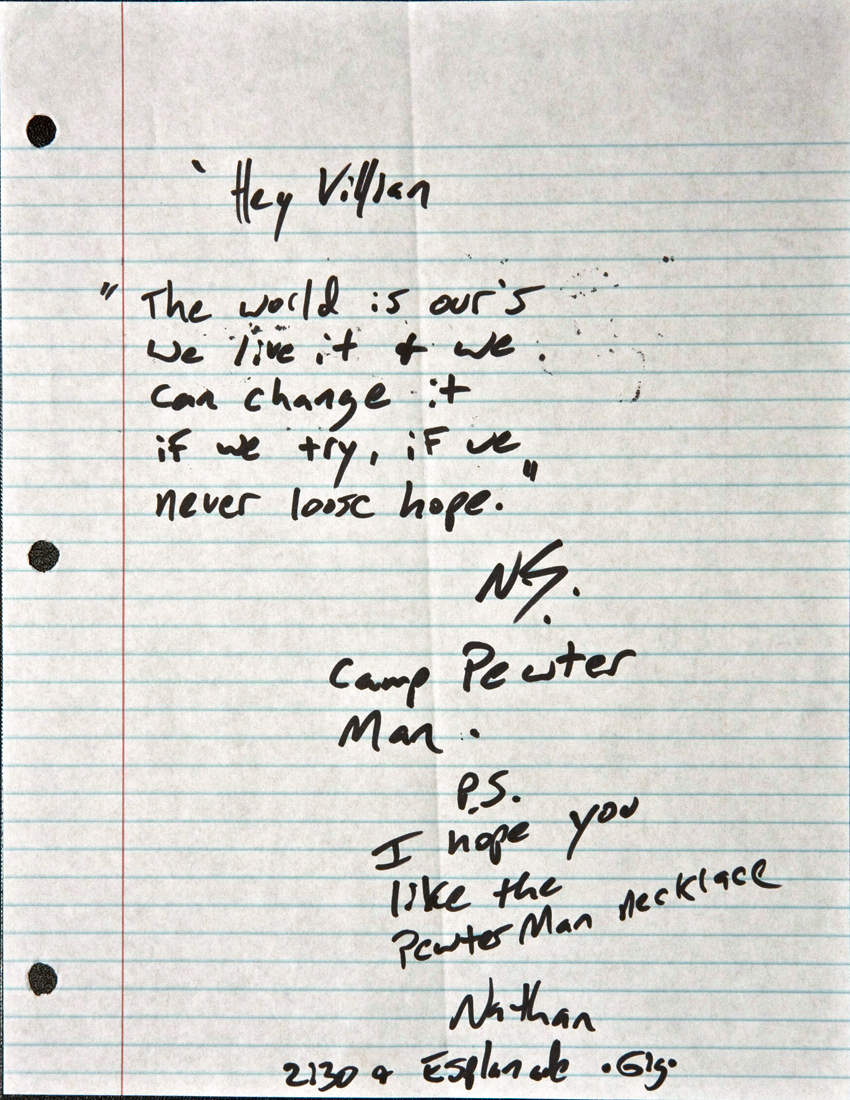 ' Hey Villian
" The world is our's
we live it & we.
can change it
if we try, if we
never loose hope. "
NS.
Camp Pewter
Man.
P.S.
I hope you
like the
Pewter Man necklace
Nathan
2:30 & Esplanade